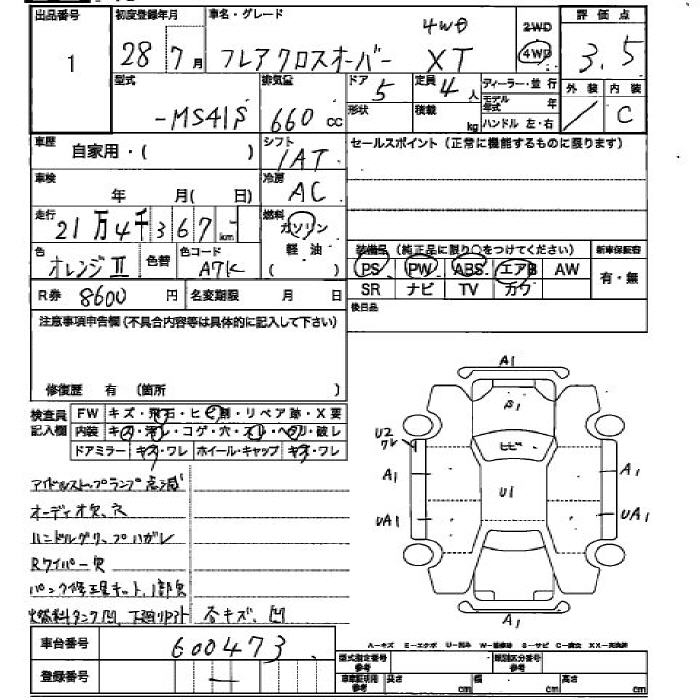 出品番号 初度登録年月 車名・グレード 4WD 2WD 評価点
1 28 7月 フレアクロスオーバー XT 4WD 3.5
型式 排気量 ドア 5 定員 4人 ディーラー・並行 外装 内装
-MS41S 660cc 形状 積載 kg モデル年式 年 / C
ハンドル 左・右
車歴 自家用・( ) シフト IAT セールスポイント(正常に機能するものに限ります)
車検 年 月( 日) 冷房 AC
走行 21万4千367km 燃料 ガソリン
軽油
( )
装備品(純正品に限り○をつけてください) 新車保証書
色 オレンジII 色替 色コード A7K PS PW ABS エアB AW 有・無
R券 8600円 名変期限 月 日 SR ナビ TV カワ
後日品
注意事項申告欄(不具合内容等は具体的に記入して下さい)
修復歴 有 (箇所 )
検査員記入欄 FW キズ・飛石・ヒビ割・リペア跡・X要
内装 キズ・汚れ・コゲ・穴・スレ・ヘタリ・破レ
ドアミラー キズ・ワレ ホイール・キャップ キズ・ワレ
A1
B1
U2
ワレ
ヒビ
A1 A1
U1
UA1 UA1
A1
アイドルストップランプ点滅
オーディオ欠、穴
ハンドルグリップハガレ
Rワイパー欠
パンク修理キット、1部欠
燃料タンク凹、下廻りサビ 各キズ、凹
車台番号 600473
登録番号 —
A-キズ E-エクボ U-凹み W-補修跡 S-サビ C-腐食 XX-交換済
型式指定番号 類別区分番号
車庫証明用参考 長さ cm 幅 cm 高さ cm